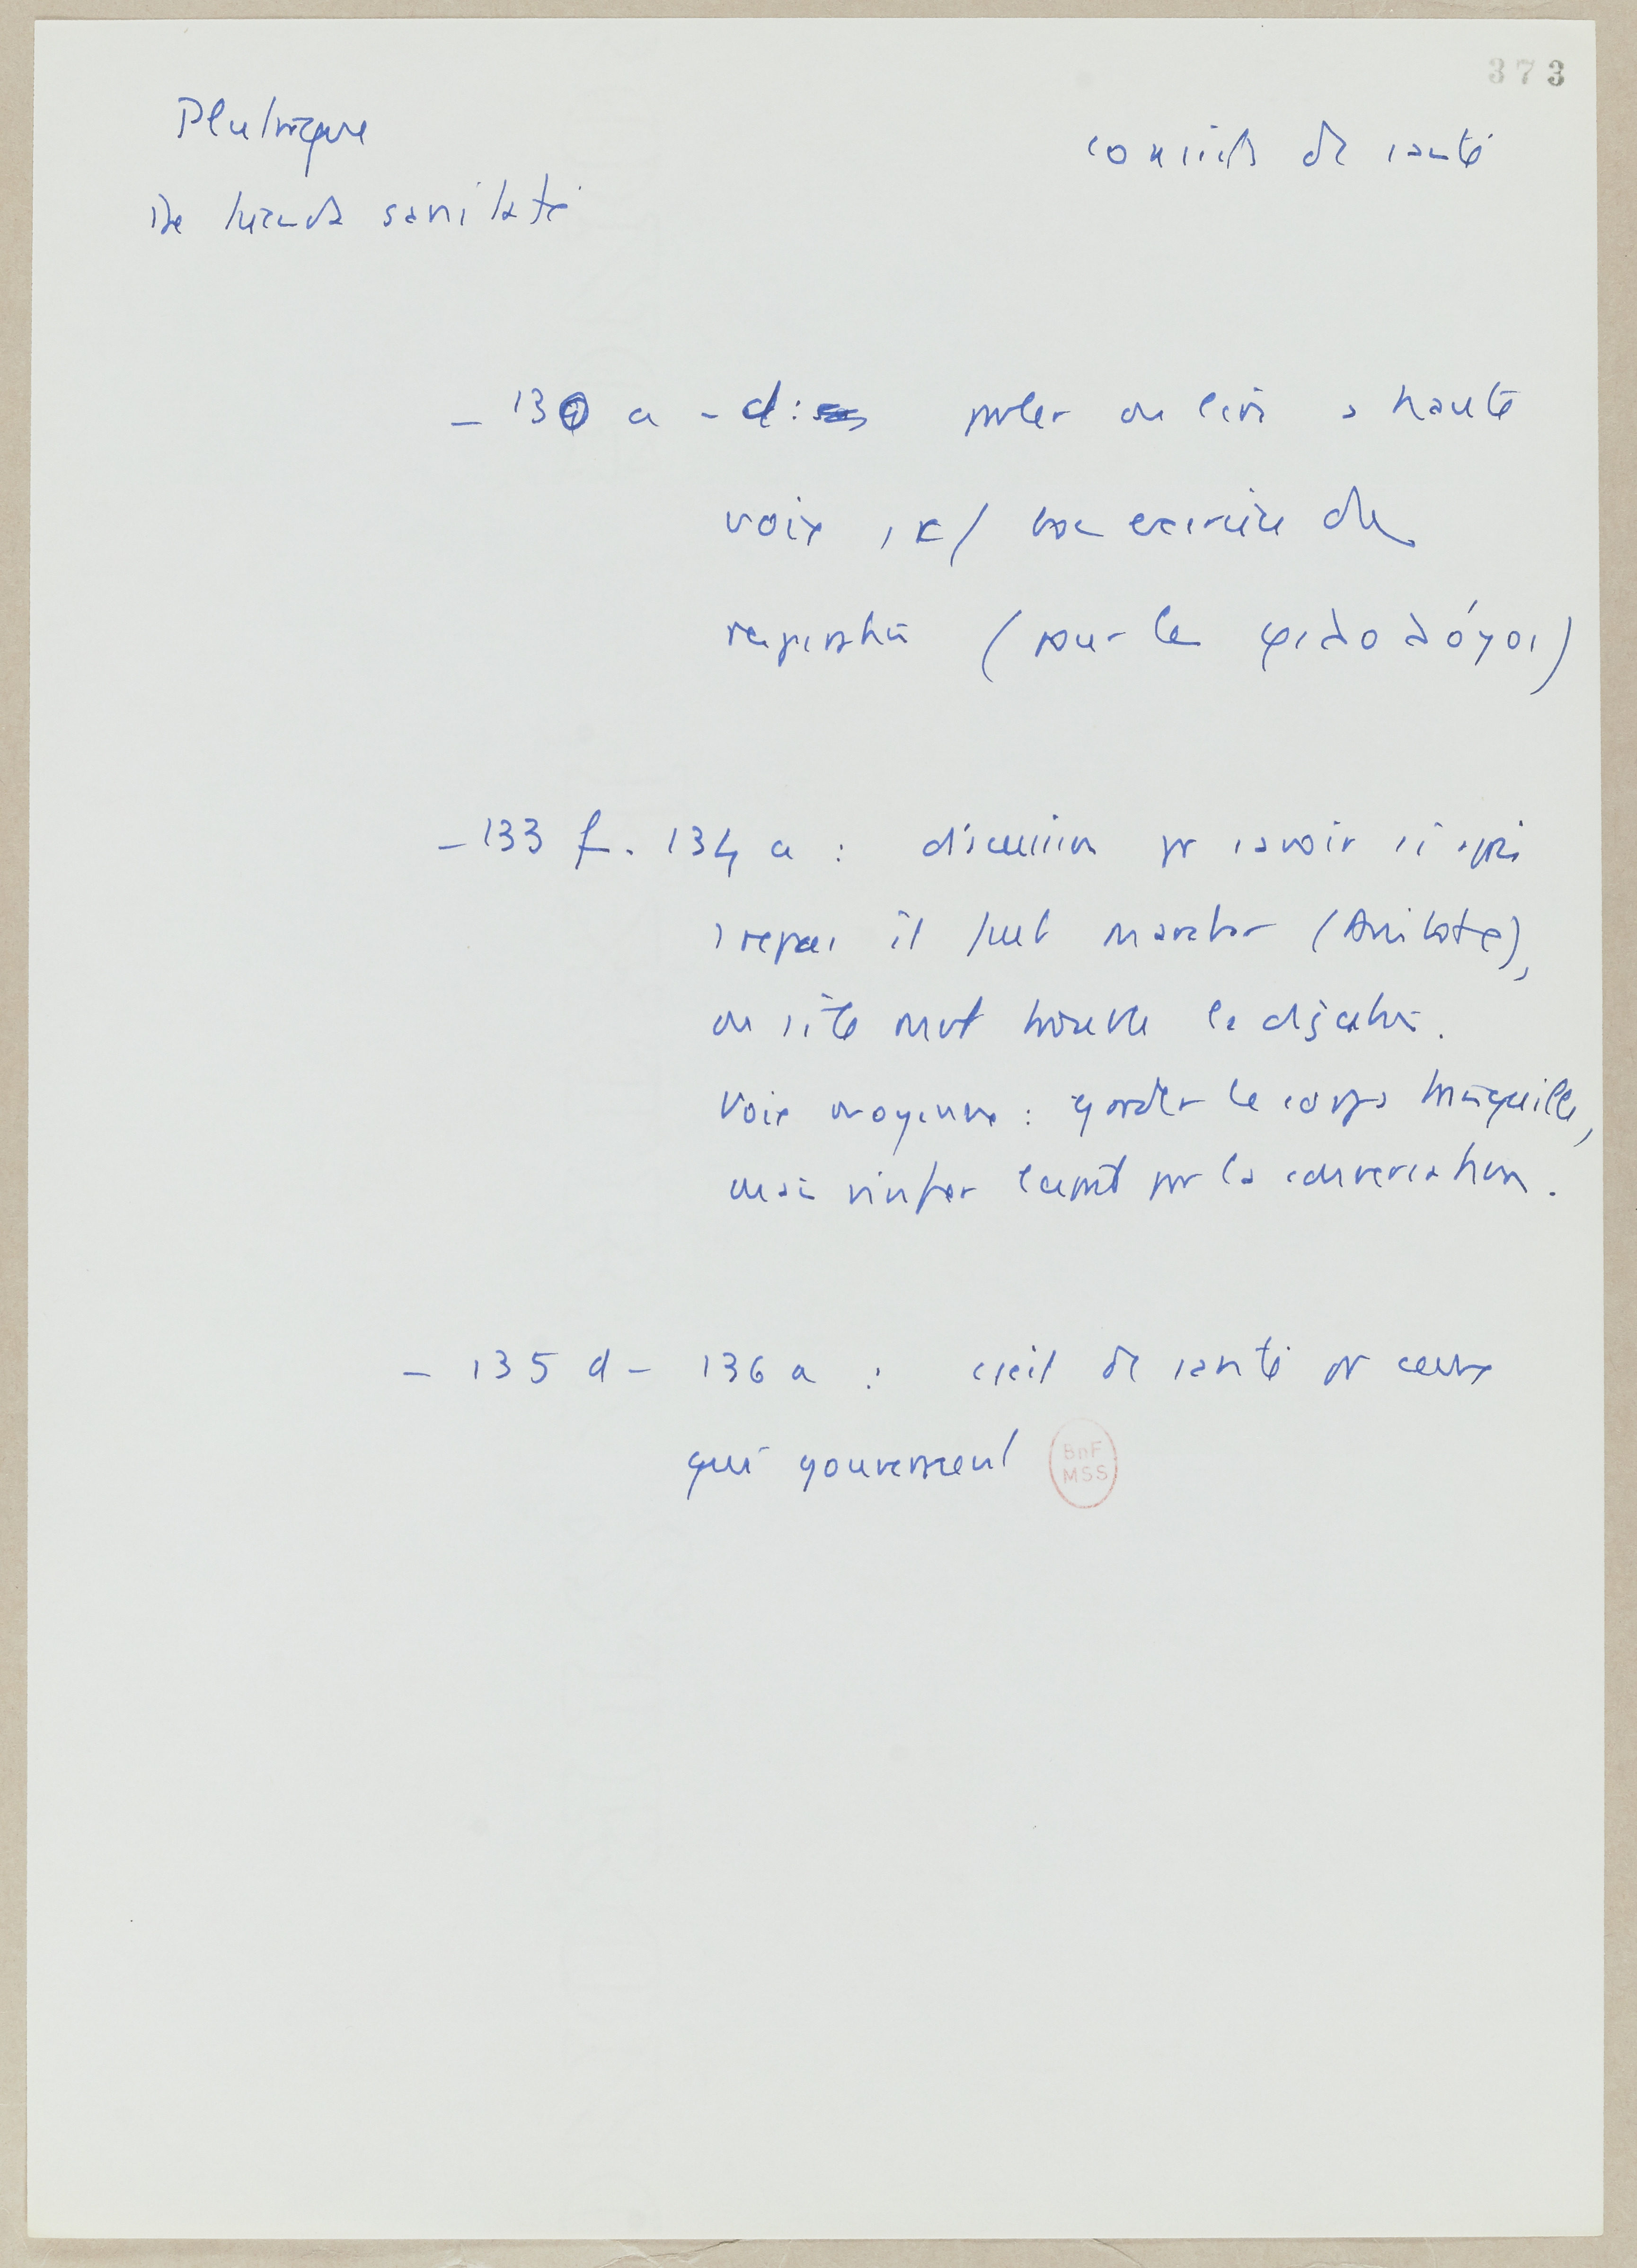 373
Plutarque
De tuenda sanitate
conseils de santé
– 130 a – d : parler ou lire à haute
voix, bon exercice de
respiration (pour les φιλολόγοι)
– 133 f. 134 a : discussion pr savoir si après
repas il faut marcher (Aristote),
ou si le mvt trouble la digestion.
Voie moyenne : garder le corps tranquille,
mais l'esprit par la conversation.
– 135 d – 136 a : de santé pr ceux
qui gouvernent
BnF
MSS